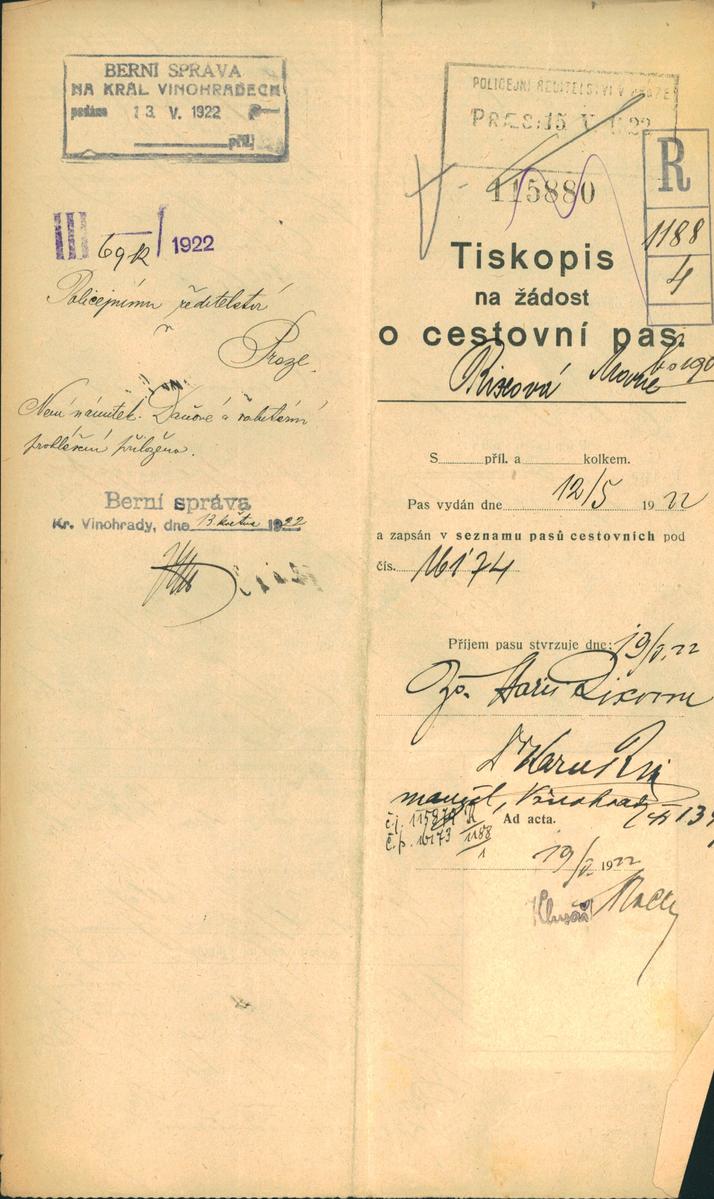 BERNÍ SPRÁVA
NA KRÁL. VINOHRADECH
podáno 13. V. 1922
příl.
III 69k / 1922
Policejnímu ředitelství
Praze.
Není námitek. Daňové a
prohlášení přiloženo.
Berní správa
Kr. Vinohrady, dne 13 května 1922
POLICEJNÍ ŘEDITELSTVÍ V PRAZE
PRAES: 15 V. 1922
115880
R
1188
4
Tiskopis
na žádost
o cestovní pas.
Marie
S příl. a kolkem.
Pas vydán dne 12/5 1922
a zapsán v seznamu pasů cestovních pod
čís. 16174
Příjem pasu stvrzuje dne: 19/V. 22
manžel, Vinohrady
Ad acta.
č.p. 16173 1188
1
19/V. 1922